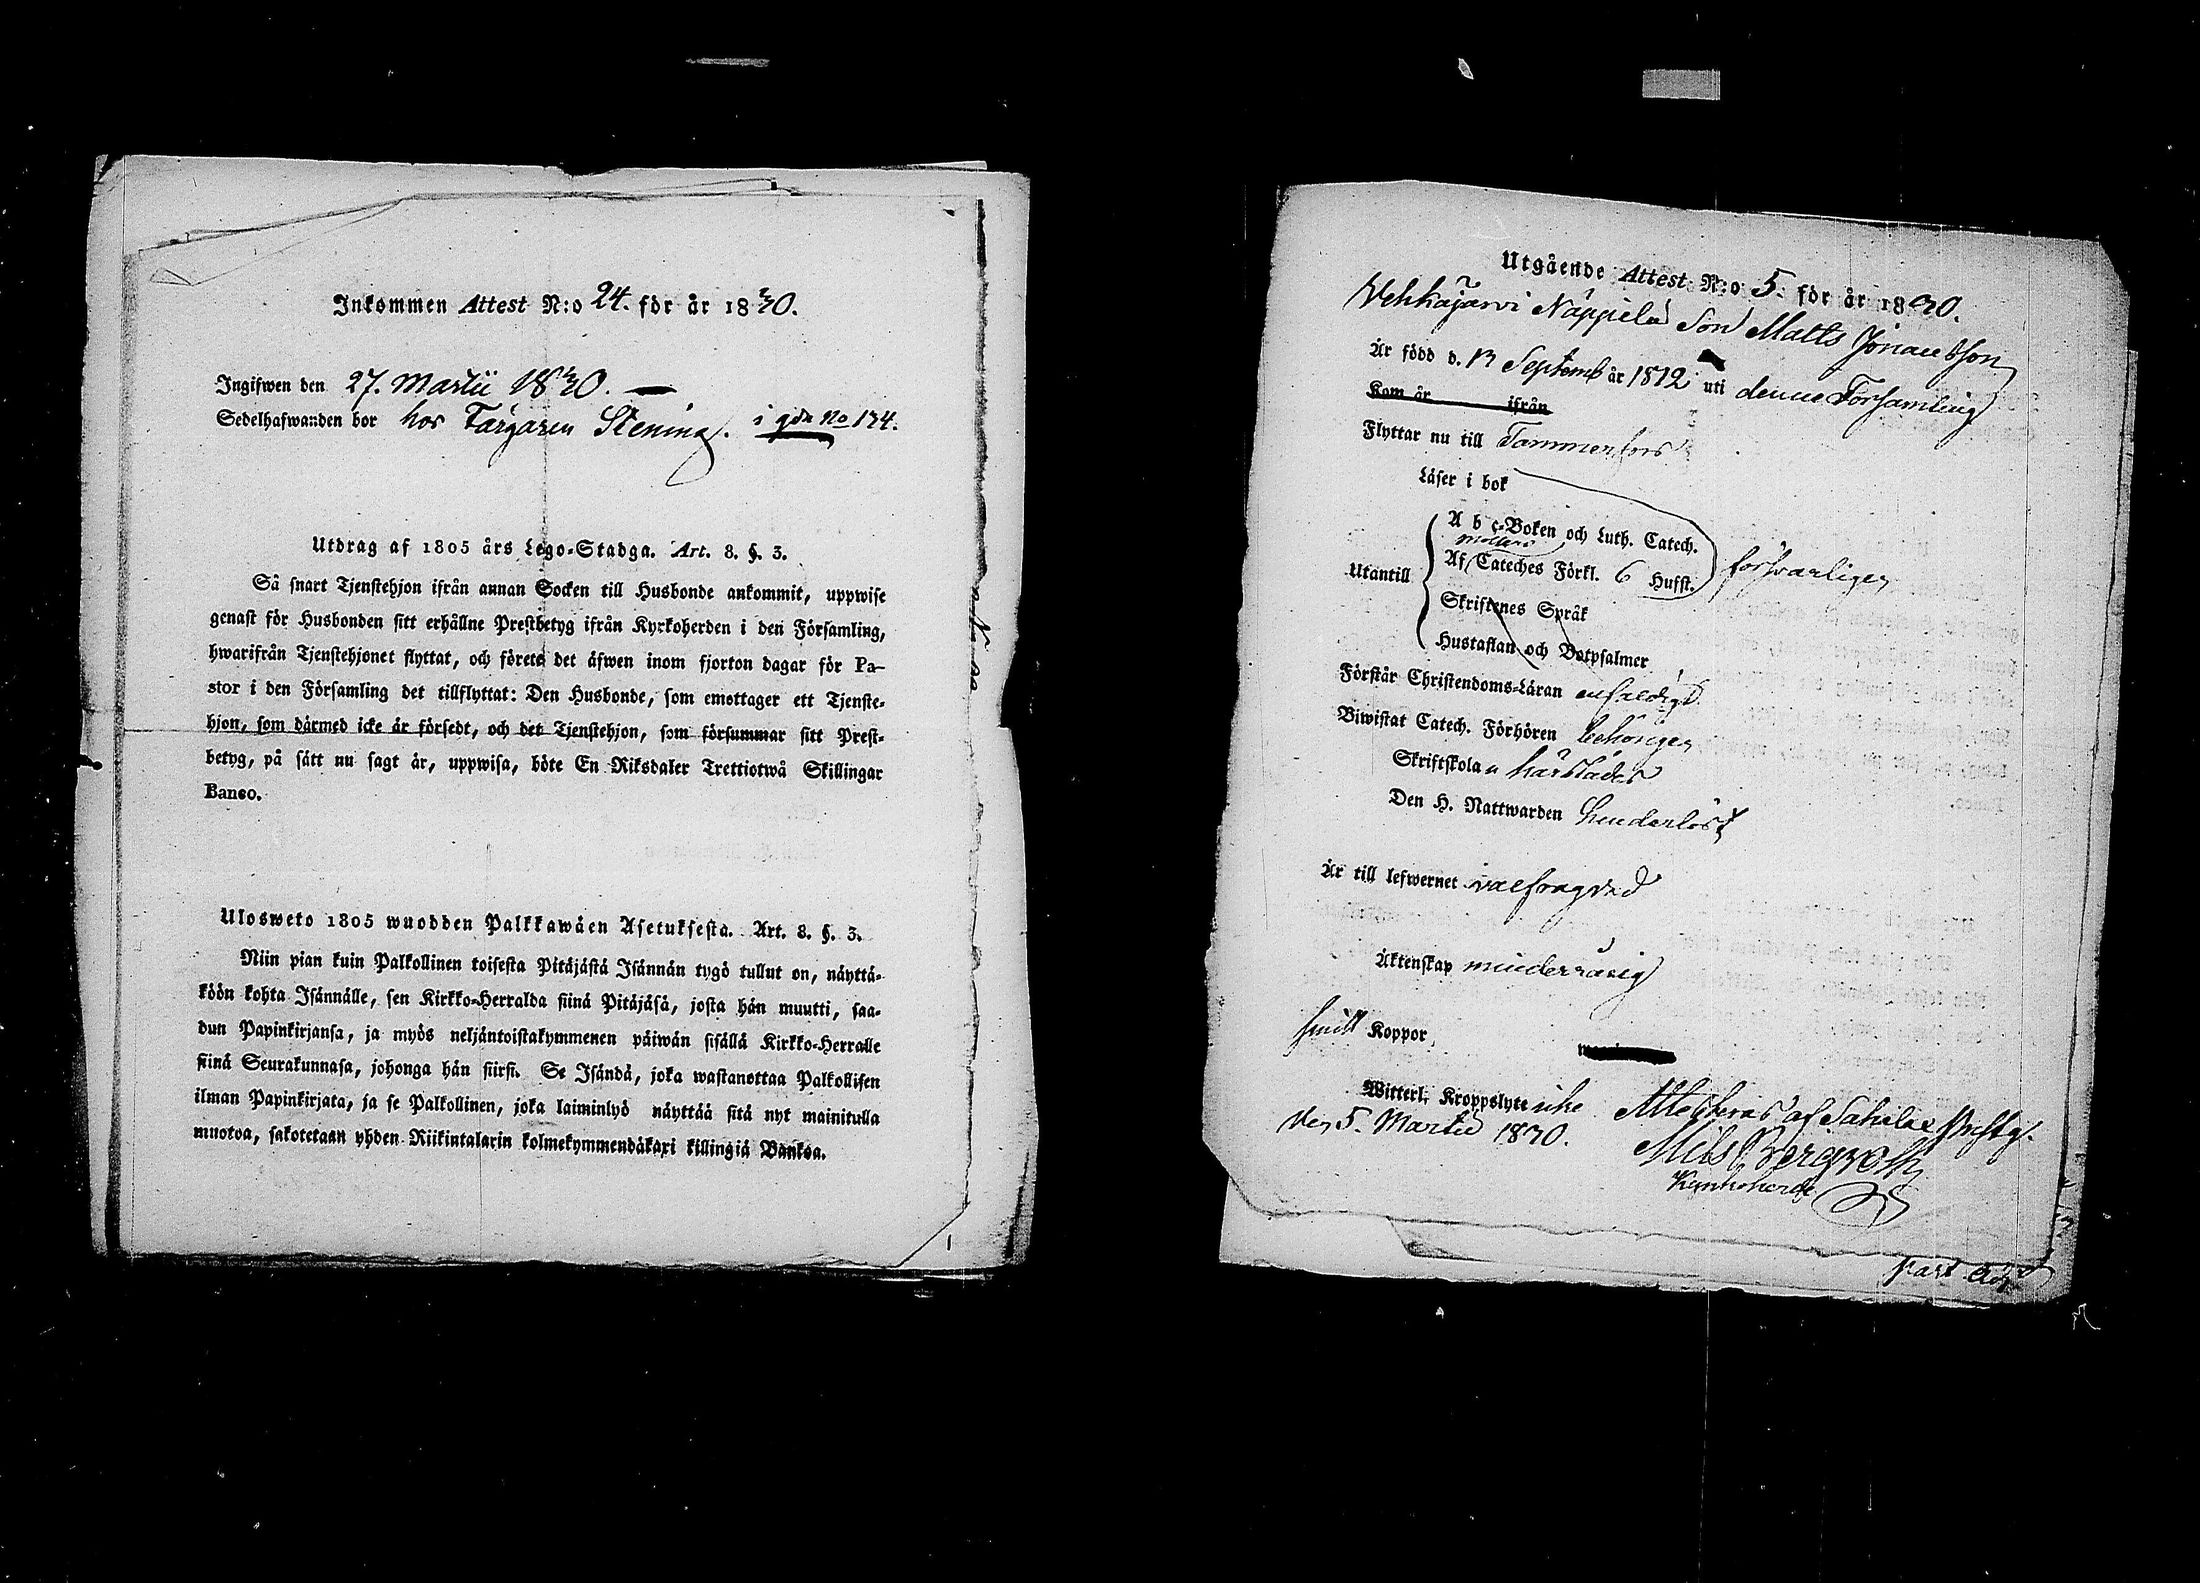 Inkommen Attest N:o 24. för år 1830.
Ingifwen den 27. Martii 1830.
Sedelhafwanden bor hos Färgaren Stening. i gdn No 134.
Utdrag af 1805 års Lego-Stadga. Art. 8. §. 3.
Så snart Tjenstehjon ifrån annan Socken till Husbonde ankommit, uppwise
genast för Husbonden sitt erhållne Prestbetyg ifrån Kyrkoherden i den Församling,
hwarifrån Tjenstehjonet flyttat, och förete det äfwen inom fjorton dagar för Pa-
stor i den Församling det tillflyttat: Den Husbonde, som emottager ett Tjenste-
hjon, som därmed icke är försedt, och det Tjenstehjon, som försummar sitt Prest-
betyg, på sätt nu sagt är, uppwisa, böte En Riksdaler Trettiotwå Skillingar
Banco.
Ulosweto 1805 wuodden Palkkawäen Asetuksesta. Art. 8. §. 3.
Niin pian kuin Palkollinen toisesta Pitäjästä Isännän tygö tullut on, näyttä-
köön kohta Isännälle, sen Kirkko-Herralda siinä Pitäjäsä, josta hän muutti, saa-
dun Papinkirjansa, ja myös neljäntoistakymmenen päiwän sisällä Kirkko-Herralle
siinä Seurakunnasa, johonga hän siirsi. Se Isändä, joka wastanottaa Palkollisen
ilman Papinkirjata, ja se Palkollinen, joka laiminlyö näyttää sitä nyt mainitulla
muotoa, sakotetaan yhden Riikintalarin kolmekymmendäkaxi killingiä Bankoa.
1
Utgående Attest N:o 5. för år 1830.
Vehkajärvi Näppilä Son Matts Johansson
Är född d. 13 Septemb år 1812 uti denne Församling
Kom år ifrån
Flyttar nu till Tammerfors
Läser i bok
A b c-Boken och Luth. Catech.
Af Cateches Förkl. 6 Hufst. försvarligen
Utantill
Skriftenes Språk
Hustaflan och Botpsalmer
Förstår Christendoms-Läran enfaldigt
Biwistat Catech. Förhören behörigen
Skriftskola härstädes
Den H. Nattwarden hinderlöst
Är till lefwernet välfrägdad
Äktenskap minderårig
haft Koppor,
Witterl. Kroppslyte icke
den 5. Martii 1830.
Attesteras af Sahalax Prestg.
Nils Bergroth
Kyrkoherde